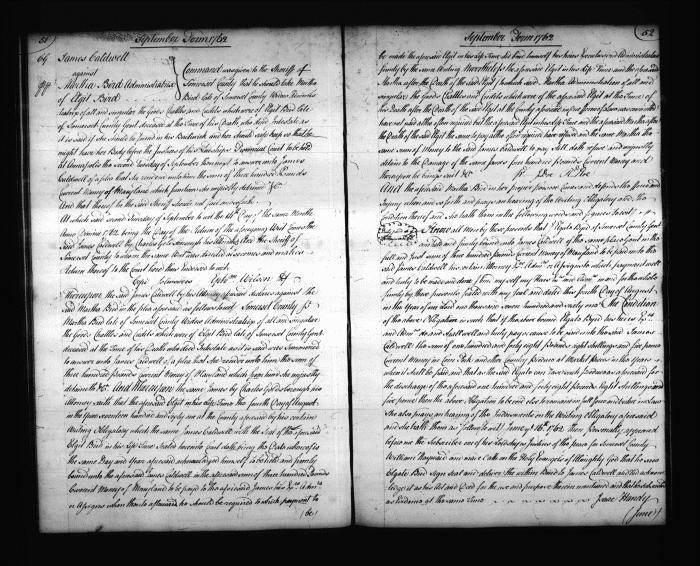 51
September Term 1762
69
James Caldwell
against
Martha Bird Administratrix
of Elgit Bird
Command was given to the Sheriff of
Somerset County that he should take Martha
Bird late of Somerset County Widow Adminis
tratrix of all and singular the Goods Chattles and Credits which were of Elgit Bird late
of Somerset County Gent deceased at the Time of his Death who died Intestate as
it is said if she should be found in his Bailiwick and her should safe keep so that he
might have her Body before the Justices of his Lordships Provincial Court to be held
at Annapolis the second Tuesday of September then next to answer unto James
Caldwell of a plea that she render unto him the sum of three hundred Pounds
Current Money of Maryland which from him she unjustly detained &c
And that thereof the said Sheriff should not fail on peril &c
At which said second Tuesday of September to wit the 14th Day of the same Month
Anno Domini 1762 being the Day of the Return of the aforegoing Writ Comes the
said James Caldwell by Charles Goldsborough his Attorney And the Sheriff of
Somerset County to whom the same Writ was directed also comes and makes
Return thereof to the Court here thus indorsed to wit
Cepi Ephm Wilson Shff
Thereupon the said James Caldwell by his Attorney aforesaid declares against the
said Martha Bird in the plea aforesaid as follows to wit Somerset County ss
Martha Bird late of Somerset County Widow Administratrix of all and singular
the Goods Chattles and Credits which were of Elgit Bird late of Somerset County Gent
deceased at the Time of his Death who died Intestate as it is said was Summoned
to answer unto James Caldwell of a plea that she render unto him the sum of
three hundred Pounds Current Money of Maryland which from him she unjustly
detaineth &c And Whereupon the same James by Charles Goldsborough his
Attorney saith that the aforesaid Elgit in his life Time the fourth Day of August
in the Year seventeen hundred and sixty one at the County aforesaid by his certain
Writing Obligatory which the same James Caldwell with the Seal of the aforesaid
Elgit Bird in his life Time Sealed here into Court doth bring the Date whereof is
the same Day and Year aforesaid acknowledged himself to be held and firmly
bound unto the aforesaid James Caldwell in the aforesaid sum of three hundred Pounds
Current Money of Maryland to be paid to the aforesaid James his
or Assigns when thereto afterward he should be required to which payment to
(be)
52
September Term 1762
be made the aforesaid Elgit in his life Time did bind himself his heirs Executors and Administrators
firmly by the same Writing Nevertheless the aforesaid Elgit in his life Time and the aforesaid
Martha after the Death of the said Elgit to which said Martha Administration of all and
singular the Goods Chattles and Credits which were of the aforesaid Elgit at the Time of
his Death after the Death of the said Elgit at the County aforesaid in due form of law was committed
have not
the Death of the said Elgit the same to pay altho' often required have refused and the same Martha the
same sum of Money to the said James Caldwell to pay still doth refuse and unjustly
detains to the Damage of the same James five hundred Pounds Current Money and
thereupon he brings suit &c Doe Roe
And the aforesaid Martha Bird in her proper person comes and defends the force and
Injury when and so forth and prays an hearing of the Writing Obligatory and the
Condition thereof and she hath them in the following words and figures to wit
Know all Men by these presents that I Elgate Bird of Somerset County Gent
am held and firmly bound unto James Caldwell of the same place Gent in the
full and Just sum of three hundred Pounds Current Money of Maryland to be paid unto the
said James Caldwell his certain Attorney or Assigns to which payment well
and truly to be made and done I bind my self my Heirs in and for the whole
firmly by these presents Sealed with my Seal and dated this fourth Day of August
in the Year of our Lord one thousand seven hundred and sixty one The Condition
of the above Obligation is such that if the above bound Elgate Bird his heirs
and shall well and truly pay or cause to be paid unto the said James
Caldwell the sum of one hundred and forty eight Pounds eight shillings and five pence
Current Money in Corn Pork and other Country produce at Market price
the discharge of the aforesaid one hundred and forty eight Pounds Eight shillings and
five pence then the above Obligation to be void else to remain in full force and virtue in Law
She also prays an hearing of the Indorsements on the Writing Obligatory aforesaid
and she hath them as follows to wit June 16th 1762 then Personally appeared
before me the Subscriber one of his Lordships Justices of the peace for Somerset County
William Hayward and made Oath on the Holy Evangels of Almighty God that he saw
Elgate Bird sign seal and deliver the within Bond to James Caldwell and did acknow
ledge it as his Act and Deed for the use and purpose therein mentioned and that he
as Evidence at the same time Isaac Handy
(June)